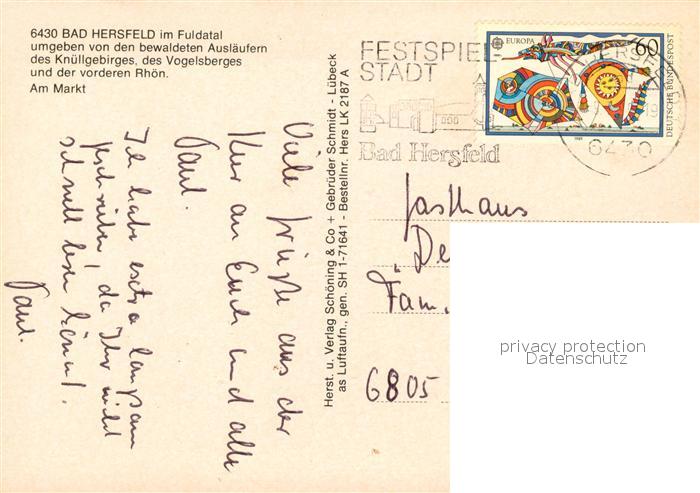 6430 BAD HERSFELD im Fuldatal
umgeben von den bewaldeten Ausläufern
des Knüllgebirges, des Vogelsberges
und der vorderen Rhön.
Am Markt
Viele Grüße aus der
Kur an Euch und alle
Paul.
Ich habe extra langsam
geschrieben, da Ihr nicht
schnell lesen könnt!
Paul.
Herst. u. Verlag Schöning & Co + Gebrüder Schmidt - Lübeck
as Luftaufn., gen. SH 1-71641 - Bestellnr. Hers LK 2187 A
FESTSPIEL-
STADT
Bad Hersfeld
EUROPA
60
DEUTSCHE BUNDESPOST
6430
Gasthaus
De
Fam.
6805
privacy protection
Datenschutz